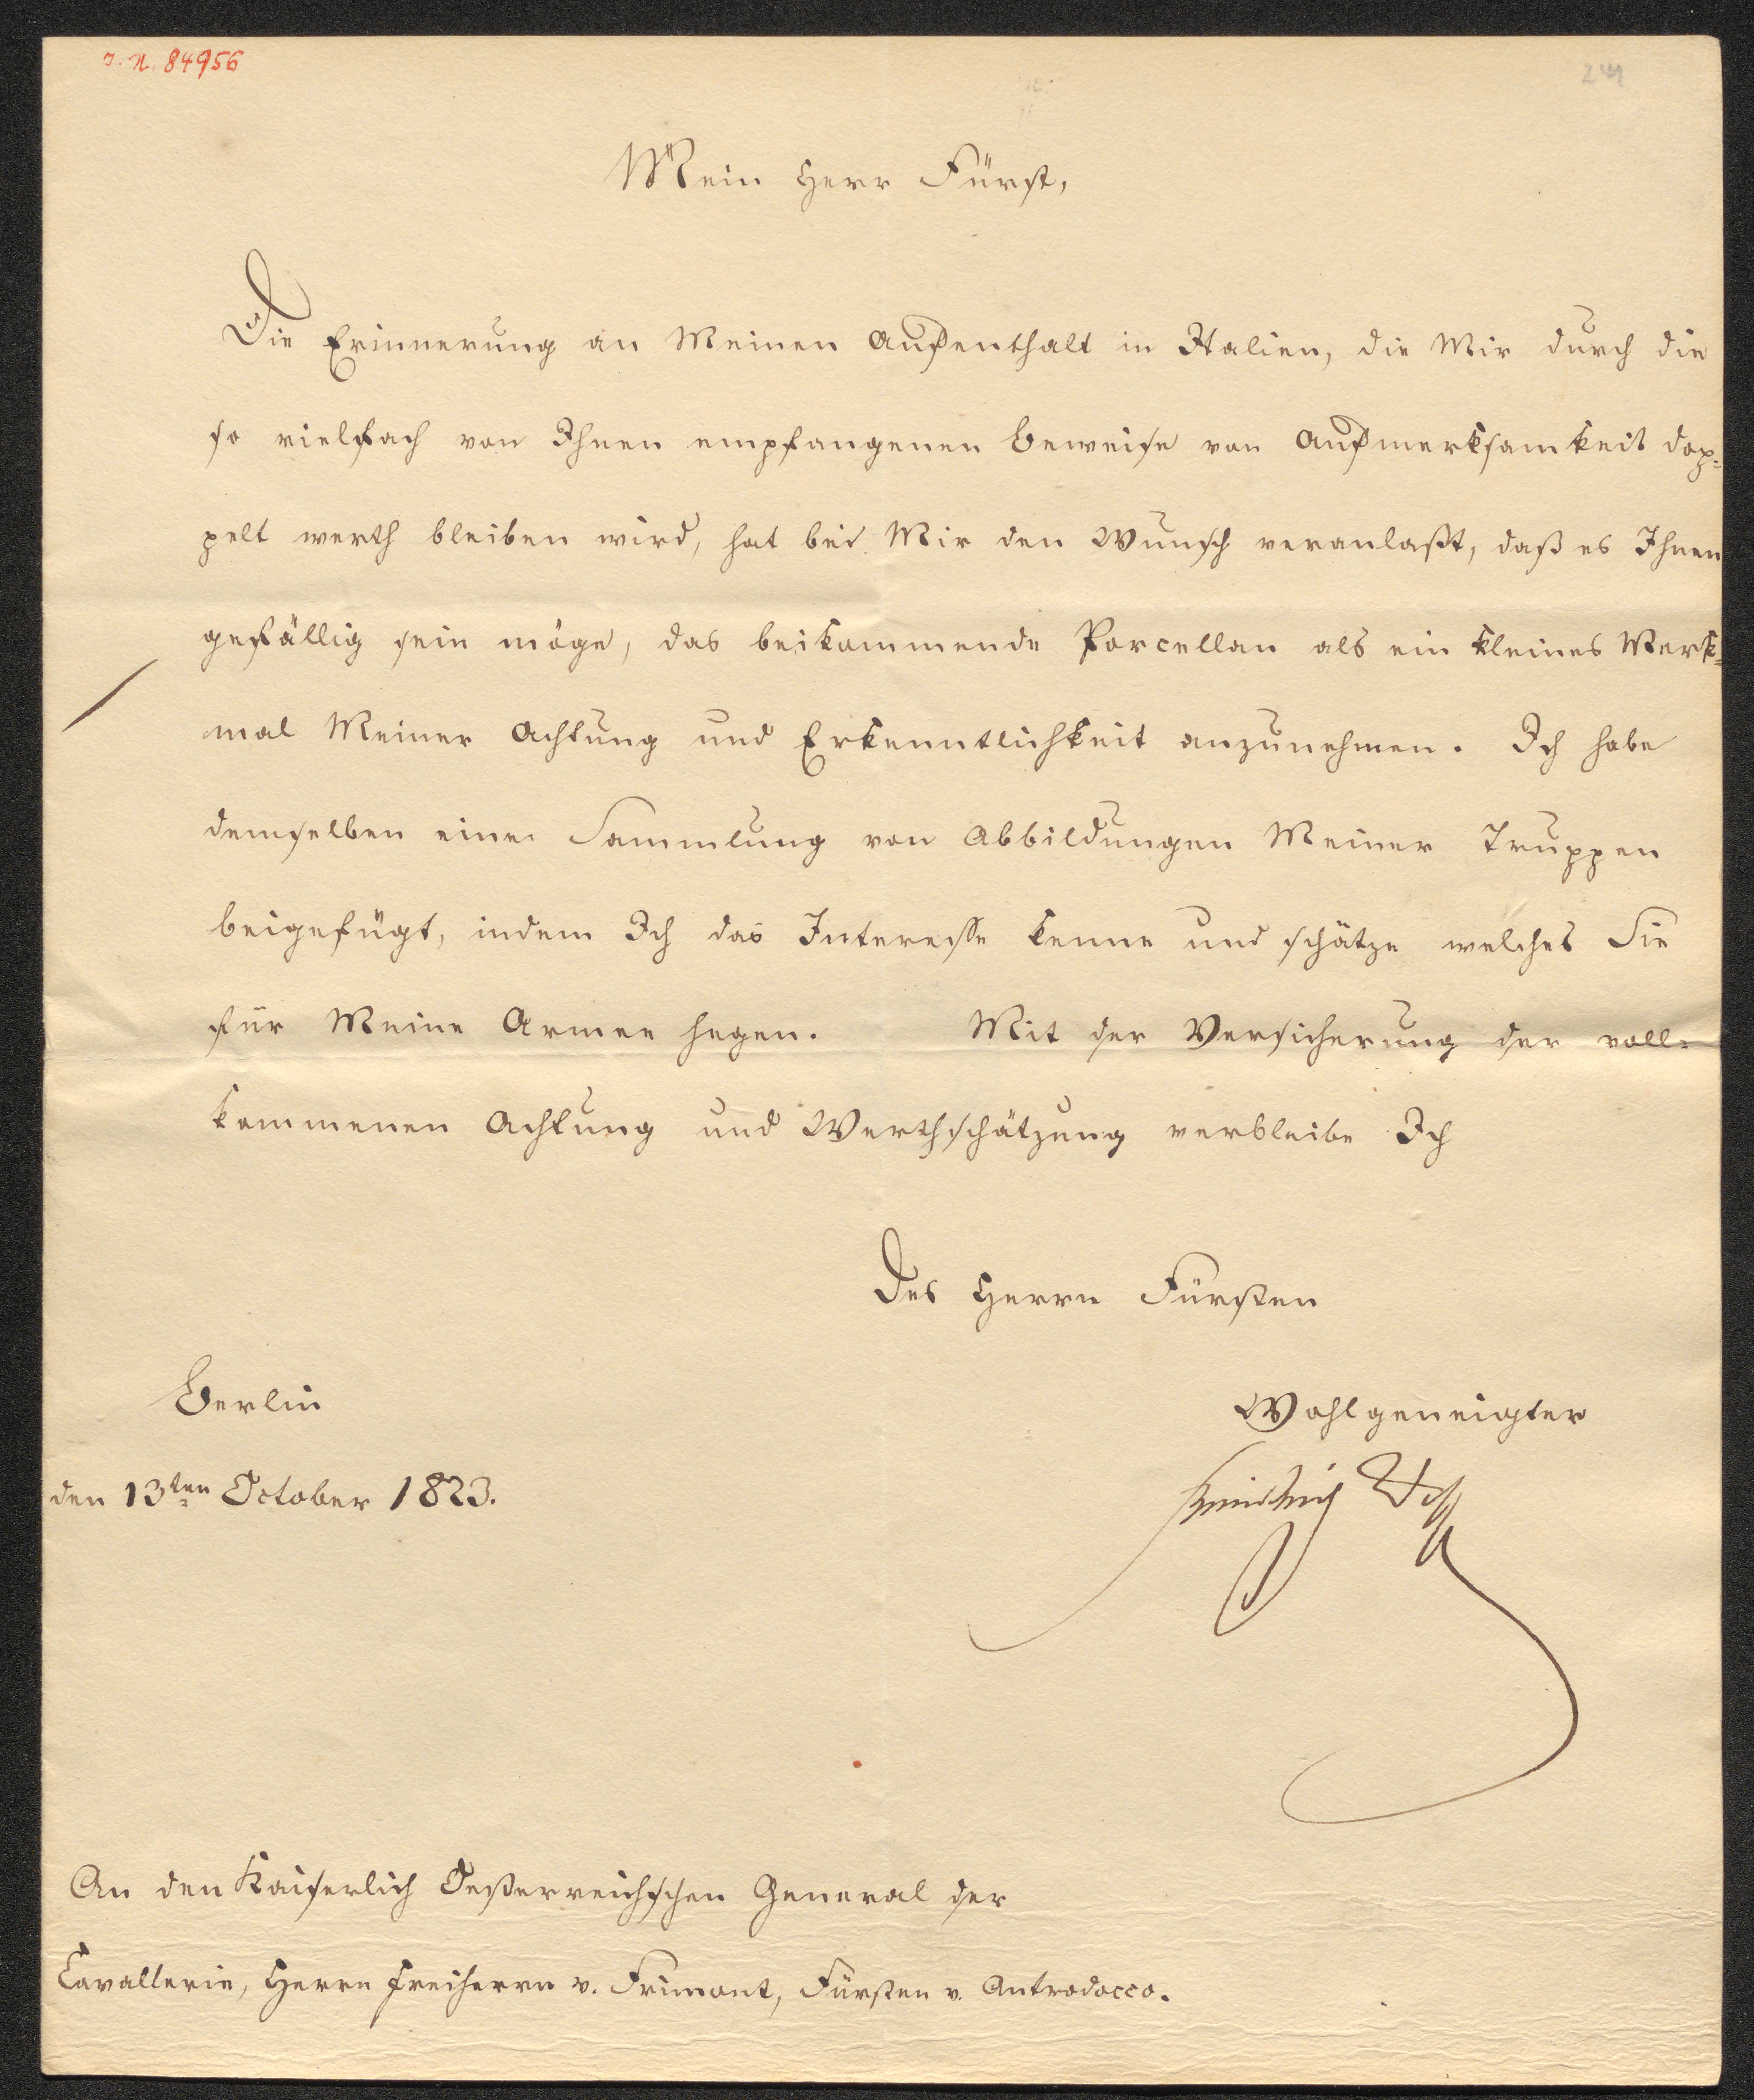 J. N. 84956
241
Mein Herr Fürst,
Die Erinnerung an Meinen Aufenthalt in Italien, die Mir durch die
so vielfach von Ihnen empfangenen Beweise von Aufmerksamkeit dop-
pelt werth bleiben wird, hat bei Mir den Wunsch veranlaßt, daß es Ihnen
gefällig sein möge, das beikommende Porcellan als ein kleines Merk-
mal Meiner Achtung und Erkenntlichkeit anzunehmen. Ich habe
demselben eine Sammlung von Abbildungen Meiner Truppen
beigefügt, indem Ich das Interesse kenne und schätze welches Sie
für Meine Armee hegen. Mit der Versicherung der voll-
kommenen Achtung und Werthschätzung verbleibe Ich
Des Herrn Fürsten
Berlin
Wohlgeneigter
den 13ten October 1823.
Friedrich Wilh
An den Kaiserlich Oesterreichschen General der
Cavallerie, Herrn Freiherrn v. Frimont, Fürsten v. Antrodocco.